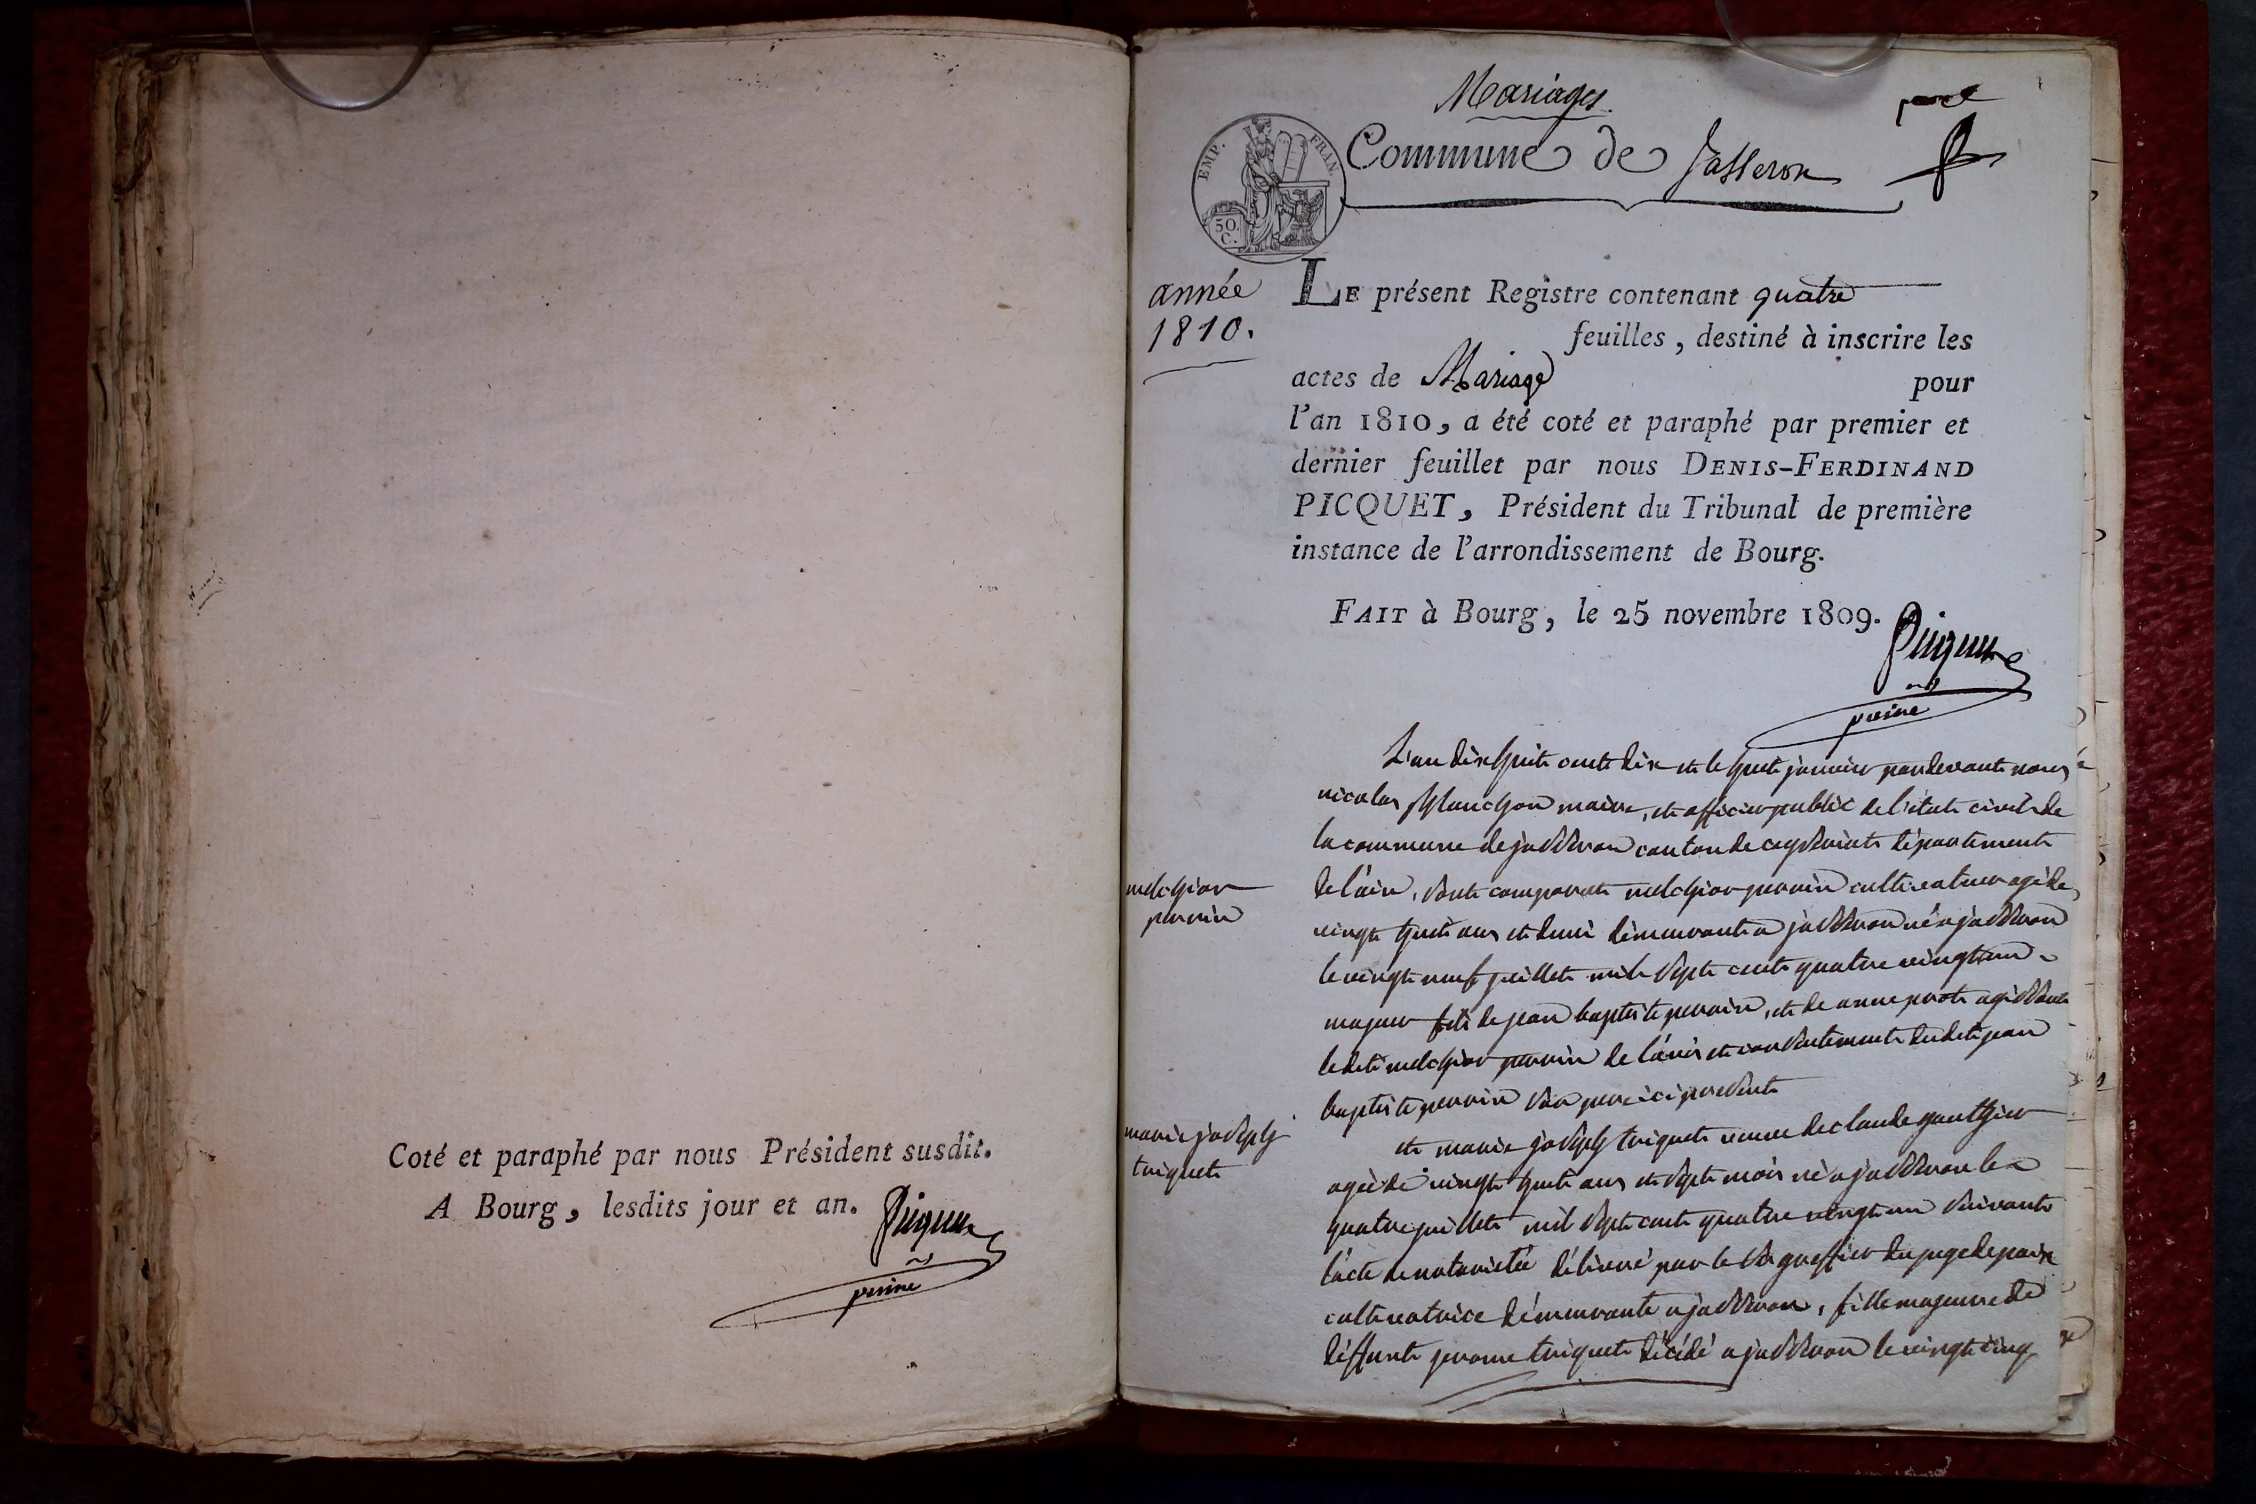 Coté et paraphé par nous Président susdit.
A Bourg, lesdits jour et an.
Mariages
EMP. FRAN.
50. C.
Commune de Jasseron
année
1810.
LE présent Registre contenant quatre
feuilles, destiné à inscrire les
actes de Mariage pour
l'an 1810, a été coté et paraphé par premier et
dernier feuillet par nous DENIS-FERDINAND
PICQUET, Président du Tribunal de première
instance de l'arrondissement de Bourg.
FAIT à Bourg, le 25 novembre 1809.
L'an dix huit cent dix et le huit janvier pardevant nous
nicolas maire, et officier public de l'état civil de
la commune de jasseron canton de ceyseriat département
de l'ain, sont comparut melchior perrin cultivateur agé de
vingt huit ans et demi demeurant a jasseron né a jasseron
le vingt neuf juillet mil sept cent quatre vingt un
majeur fils de jean baptiste perrin, et de anne agissant
ledit melchior perrin de l'avis et consentement dudit jean
baptiste perrin son pere ici present
et marie joseph triquet veuve de claude gauthier
agée de vingt huit ans et sept mois né a jasseron le
quatre juillet mil sept cent quatre vingt un suivant
l'acte de notorietée délivré par le Sr greffier du juge de paix
cultivatrice demeurante a jasseron, fille majeure de
déffunt jerome triquet décédé a jasseron le vingt cinq
melchior
perrin
marie joseph
triquet